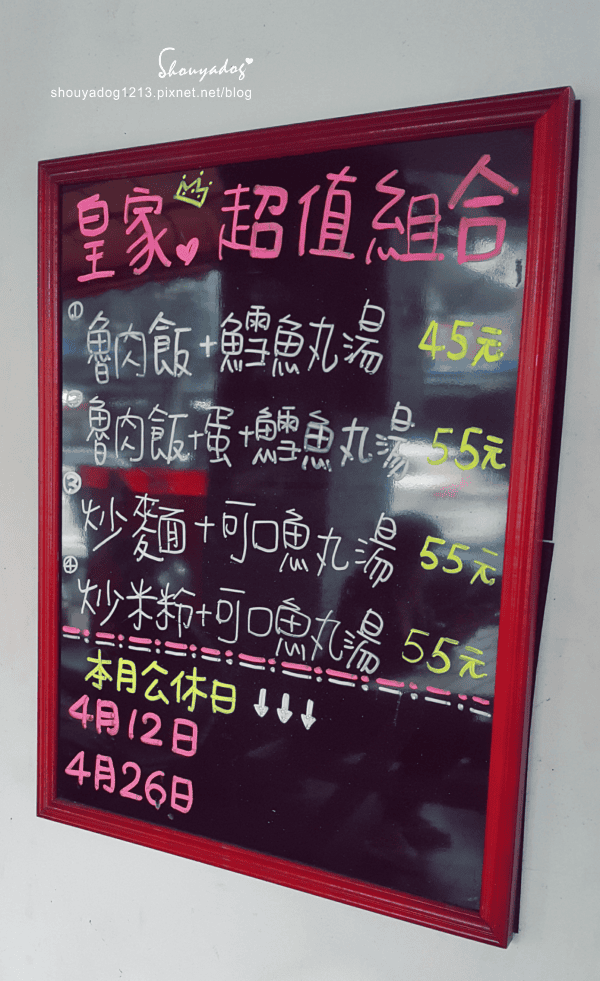 Shouyadog
shouyadog1213.pixnet.net/blog
皇家 超值組合
① 魯肉飯+鱈魚丸湯 45元
② 魯肉飯+蛋+鱈魚丸湯 55元
③ 炒麵+可口魚丸湯 55元
④ 炒米粉+可口魚丸湯 55元
本月公休日 ↓↓↓
4月12日
4月26日